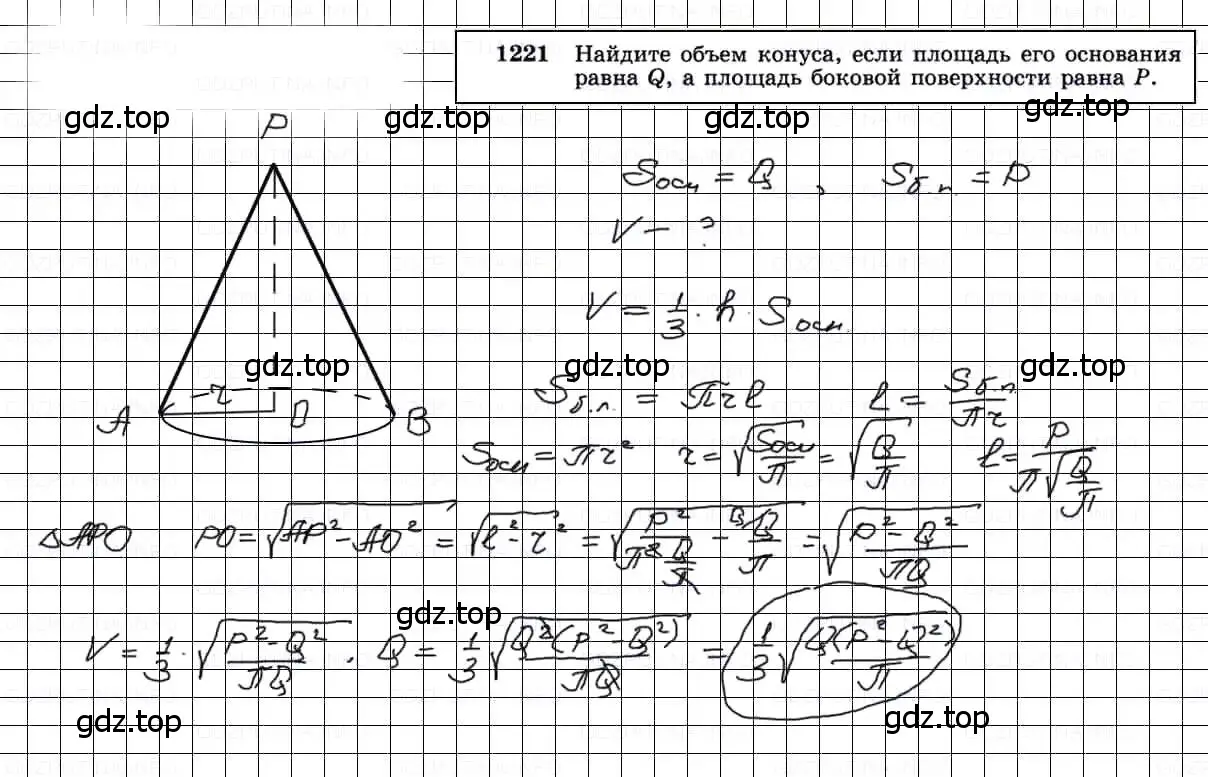 1221 Найдите объем конуса, если площадь его основания
равна Q, а площадь боковой поверхности равна P.
gdz.top gdz.top gdz.top gdz.top
P
Sосн = Q, Sб.п. = P
V - ?
V = 1/3 · h · Sосн.
gdz.top gdz.top gdz.top
r
A O B
Sб.п. = πrl l = Sб.п./πr
Sосн = πr² r = √(Sосн/π) = √(Q/π) l = P/(π√(Q/π))
△APO PO = √(AP² - AO²) = √(l² - r²) = √(P²/(π² Q/π) - Q/π) = √((P² - Q²)/(πQ))
gdz.top
V = 1/3 · √((P² - Q²)/(πQ)) · Q = 1/3 √(Q²(P² - Q²)/(πQ)) = 1/3 √(Q(P² - Q²)/π)
gdz.top gdz.top gdz.top